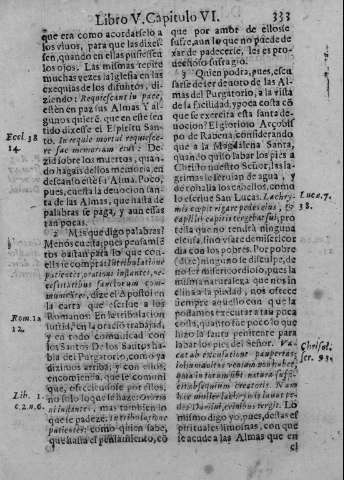 Libro V. Capitulo VI. 333
que era como acordarselo a
los vivos, para que las dixes-
sen, quando en ellas pusiessen
los ojos. Las mismas repite
muchas vezes la Iglesia en las
exequias de los difuntos, di-
ziendo: Requiescant in pace,
estèn en paz sus Almas. Y al-
gunos quierē, que en este sen-
tido dixesse el Espiritu San-
to. In requie mortui requiesce-
re fac memoriam eius: De-
zid sobre los muertos, quan-
do hagais dellos memoria, en
descanso estè su Alma. Poco,
pues, cuesta la devocion san-
ta de las Almas, que hasta de
palabras se paga, y aun estas
tan pocas.
2 Mas que digo palabras?
Menos cuesta, pues pensamiē-
tos bastan para lo que con
ella se compra. In tribulatione
patientes, orationi instantes, ne-
cessitatibus sanctorum com-
municantes, dize el Apostol en
la carta que escrive a los
Romanos: En la tribulacion
sufrid, en la oracion trabajad,
y en todo comunicad con
los Santos. De los Santos ha-
bla del Purgatorio, como ya
diximos arriba, y con ellos,
encomienda, que se comuni-
que, ofreciendose por ellos,
no solo lo que se haze: orationi
instantes, mas tambien lo
que se padeze: in tribulatione
patientes: como quien sabe,
que hasta el pensamiento, cō
Eccl. 38
14.
Rom. 12
12.
Lib. 1.
c. 2. n. 6.
que por amor de ellos se
sufre, aun lo que no puede de-
xar de padecerse, les es pro-
vechoso sufragio.
3 Quien podra, pues, escu-
sarse de ser devoto de las Al-
mas del Purgatorio, a la vista
de la facilidad, y poca costa cō
que se exercita esta santa de-
vocion! El glorioso Arçobis-
po de Rabena, considerando
que a la Magdalena Santa,
quando quiso labar los pies a
Christo nuestro Señor, las la-
grimas le sirvieron de agua, y
de toballa los cabellos, como
lo escrive San Lucas. Lachry-
mis cæpit rigare pedes eius, &
capillis capitis tergebat sui, pro
testa que no tendrà ninguna
escusa, sino vsare de misericor
dia con los pobres. Por pobre
(dize) ninguno se disculpe, de
no ser misericordioso, pues la
misma naturaleza que nos in
clina a la piedad, nos ofrece
siempre aquello con que la
podamos executar a tan poca
costa, quanto fue poco lo que
hizo la santa penitente para
labar los pies del Señor. Va-
cat ab excusatione paupertas,
omnia
in faciendis natura sufficit
ad obsequium creatoris. Nam
hæc mulier lachrymis lavat pe-
des Domini, crinibus tergit. Lo
mismo digo yo, pues, destas es
pirituales limosnas, con que
se acude a las Almas en en
el
Luc. 7.
38.
Chrisol.
ser. 93.